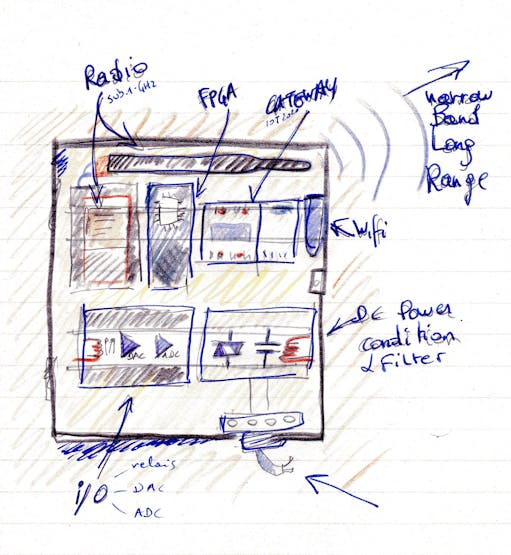 Radio
SUB.1-GHz
FPGA
GATEWAY
narrow
Band
Long
Range
Wifi
DAC
ADC
DC Power
condition
& Filter
I/O
relais
DAC
ADC